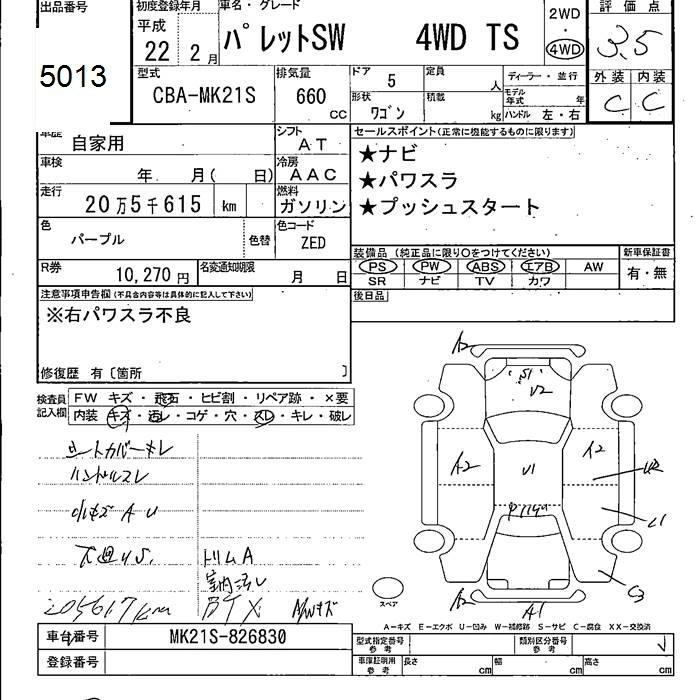 出品番号
5013
初度登録年月
平成
22 年 2 月
車名・グレード
パレットSW 4WD TS
2WD
・
4WD
評価点
3.5
型式
CBA-MK21S
排気量
660 CC
ドア 5
定員 人
形状 ワゴン
積載 kg
ディーラー・並行
モデル年式 年
ハンドル 左・右
外装 内装
C C
車歴 自家用
シフト AT
車検 年 月( 日)
冷房 AAC
走行 20万5千615 km
燃料 ガソリン
色 パープル
色替
色コード ZED
R券 10,270円
名変通知期限 月 日
セールスポイント(正常に機能するものに限ります)
★ナビ
★パワスラ
★プッシュスタート
装備品 (純正品に限り○をつけてください)
PS PW ABS エアB AW
SR ナビ TV カワ
新車保証書
有・無
後日品
注意事項申告欄(不具合内容等は具体的に記入して下さい)
※右パワスラ不良
修復歴 有〔箇所 〕
検査員記入欄
FW キズ・飛石・ヒビ割・リペア跡・×要
内装 キズ・汚レ・コゲ・穴・スレ・キレ・破レ
シートカバーキレ
ハンドルスレ
小キズ A U
下廻りS. トリムA
室内汚レ
205617km
A2
S1
U2
A2
A2
U2
U1
U1
C3
A2
A1
スペア
A−キズ E−エクボ U−凹み W−補修跡 S−サビ C−腐食 XX−交換済
車台番号 MK21S-826830
登録番号
型式指定番号 参考
類別区分番号 参考
車庫証明用 参考
長さ cm
幅 cm
高さ cm